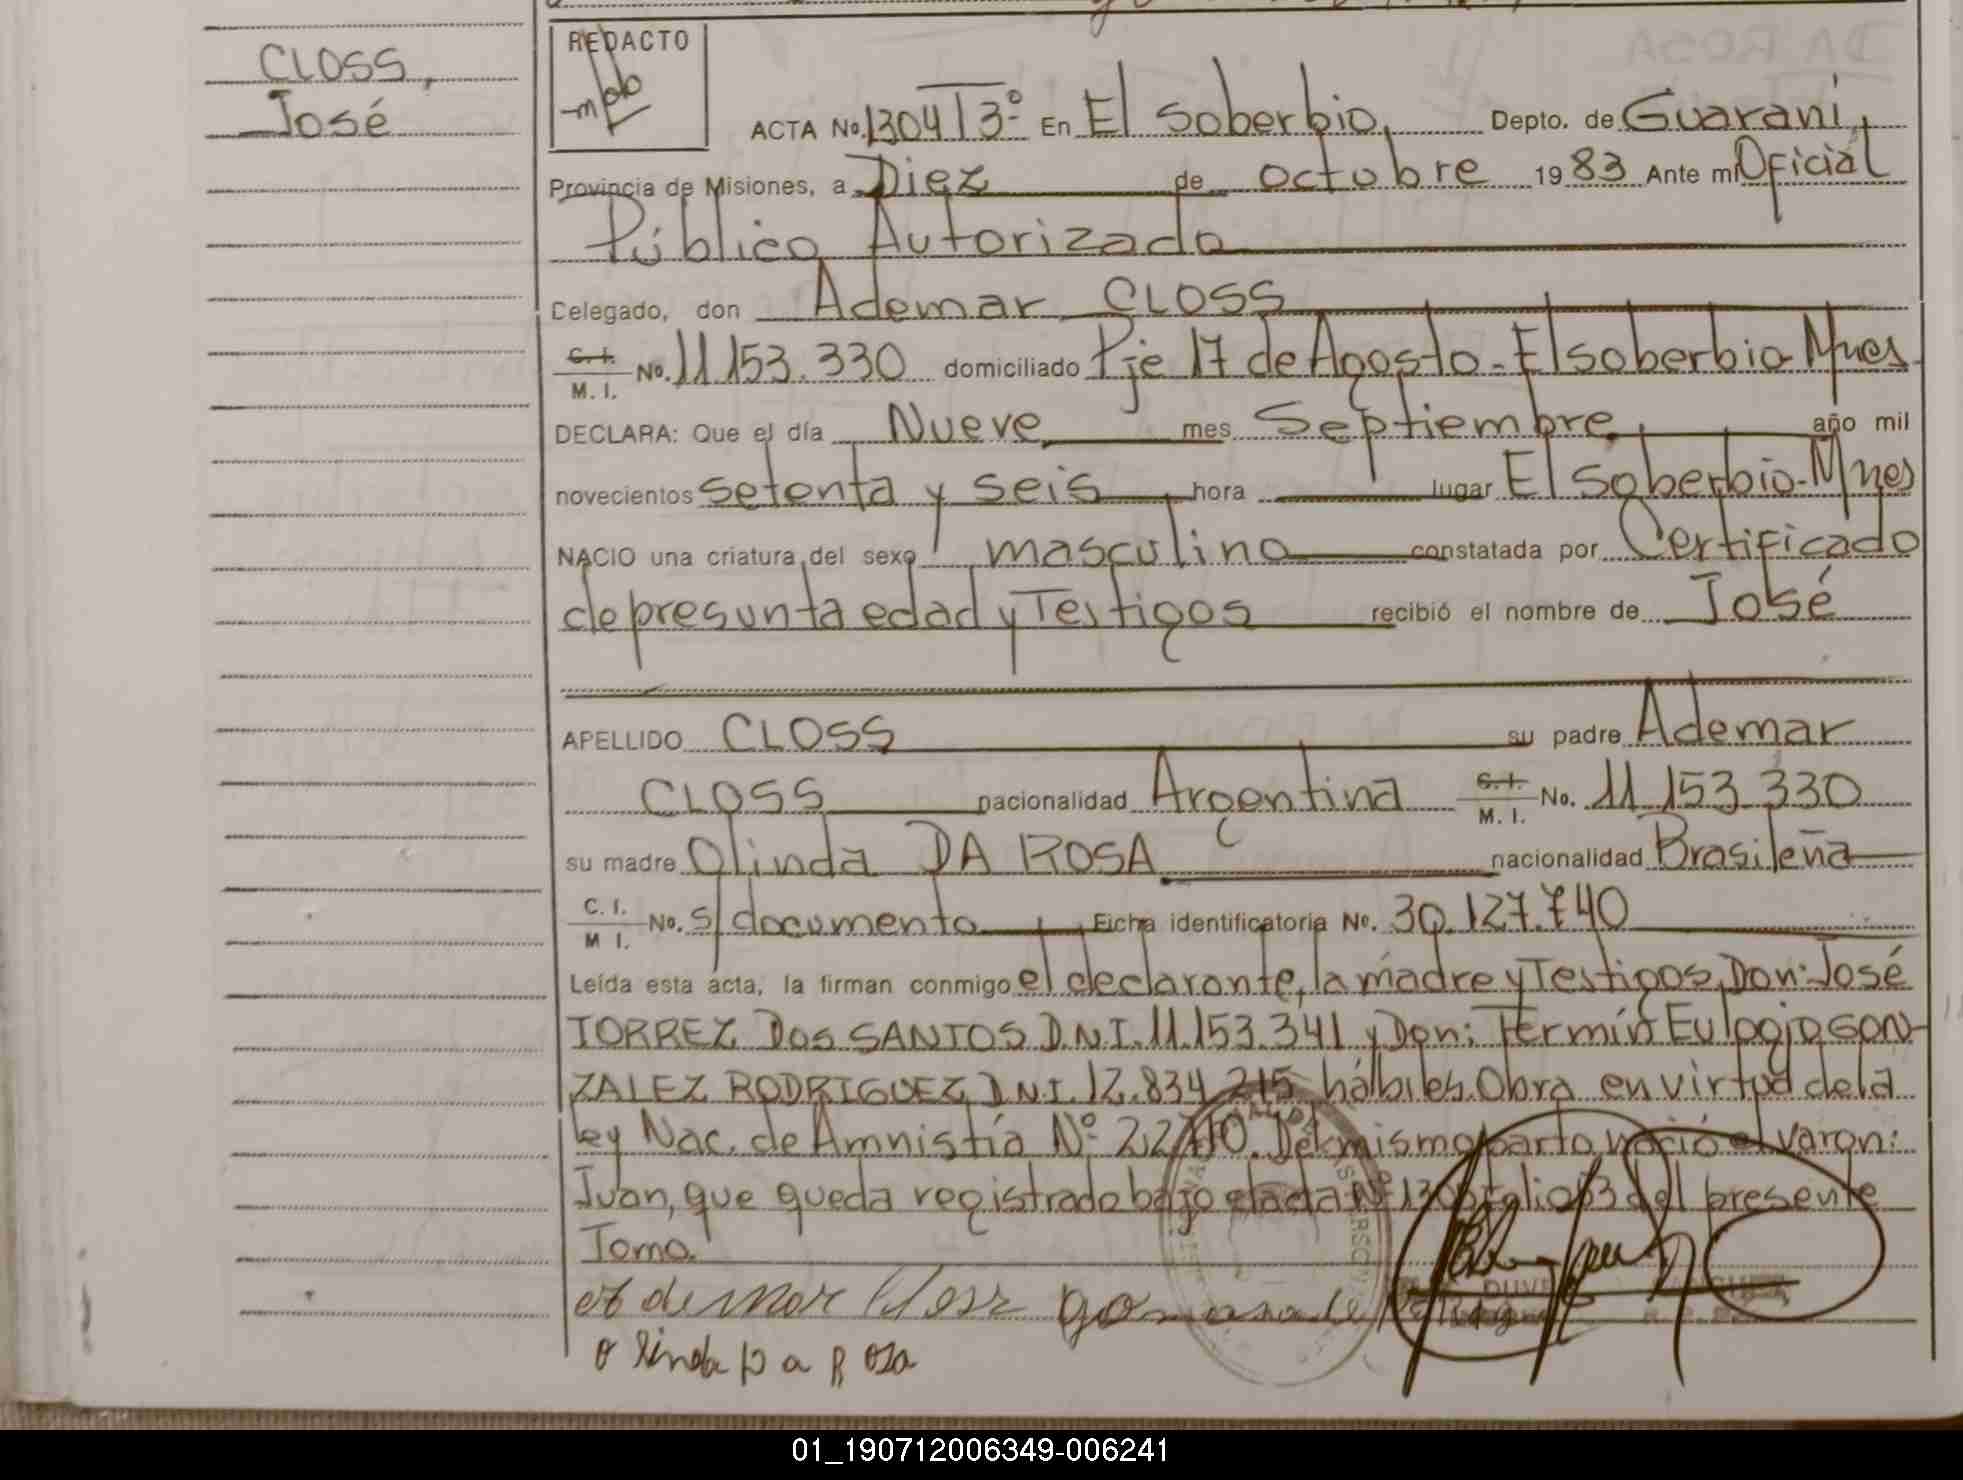 CLOSS,
José
REDACTO
ACTA No. 1304 T 3º En El Soberbio, Depto. de Guaraní,
Provincia de Misiones, a Diez de octubre 1983 Ante mí Oficial
Público Autorizado
Celegado, don Ademar CLOSS
C.I. M.I. No. 11.153.330 domiciliado Pje 17 de Agosto - El soberbio Mnes.
DECLARA: Que el día Nueve mes Septiembre año mil
novecientos setenta y seis hora lugar El Soberbio-Mnes
NACIO una criatura del sexo masculino constatada por Certificado
de presunta edad y Testigos recibió el nombre de José
APELLIDO CLOSS su padre Ademar
CLOSS nacionalidad Argentina C.I. M.I. No. 11.153.330
su madre Olinda DA ROSA nacionalidad Brasileña
C.I. M I. No. S/documento Ficha identificatoria No. 30.127.740
Leída esta acta, la firman conmigo el declarante, la madre y Testigos, Don: José
TORREZ DOS SANTOS D.N.I. 11.153.341 y Don: Fermín Eulogio GON-
ZALEZ RODRIGUEZ D.N.I. 12.834.215 hábiles. Obra en virtud de la
ley Nac. de Amnistía Nº 22.710. Del mismo parto nació el varon:
Juan, que queda registrado bajo el acta Nº 1305 Folio 03 del presente
Tomo.
Ademar Closs
Olinda D a Rosa
01_190712006349-006241